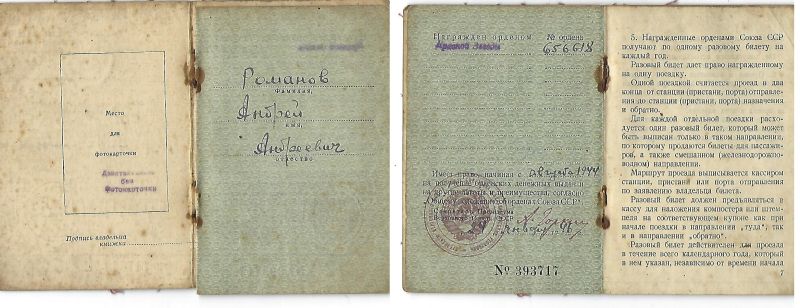 Место
для
фотокарточки
без
фотокарточки
Подпись владельца
книжки
Романов
Фамилия,
Андрей
имя,
Андреевич
отчество
Награжден орденом № ордена
Красной Звезды 656618
Имеет право, начиная с августа 1944
на получение орденских денежных выдач и
на другие льготы и преимущества, согласно
"Общему положению об орденах Союза ССР"
№ 393717
5. Награжденные орденами Союза ССР
получают по одному разовому билету на
каждый год.
Разовый билет дает право награжденному
на одну поездку.
Одной поездкой считается проезд в два
конца от станции (пристани, порта) отправле-
ния до станции (пристани, порта) назначения
и обратно.
Для каждой отдельной поездки расхо-
дуется один разовый билет, который может
быть выписан только в таком направлении,
по которому продаются билеты для пассажи-
ров, а также смешанном (железнодорож-
водном) направлении.
Маршрут проезда выписывается кассиром
станции, пристани или порта отправления
по заявлению владельца билета.
Разовый билет должен предъявляться в
кассу для наложения компостера или штем-
пеля на соответствующем купоне как при
начале поездки в направлении „туда", так
и в направлении „обратно".
Разовый билет действителен для проезда
в течение всего календарного года, который
в нем указан, независимо от времени начала
7